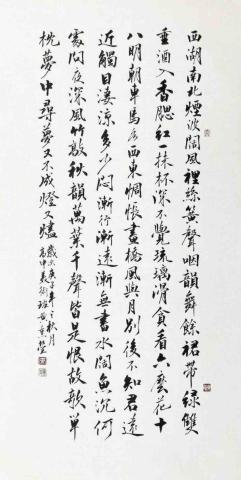 西湖南北煙波闊風裡絲簧聲咽韻舞餘裙帶綠雙
垂酒入香腮紅一抹杯深不覺琉璃滑貪看六麼花十
八明朝車馬各西東惆悵畫橋風與月別後不知君遠
近觸目淒涼多少悶漸行漸遠漸無書水闊魚沉何
處問夜深風竹敲秋韻萬葉千聲皆是恨故欹單
枕夢中尋夢又不成燈又燼
歲次庚子年之秋月
高中美術班黃